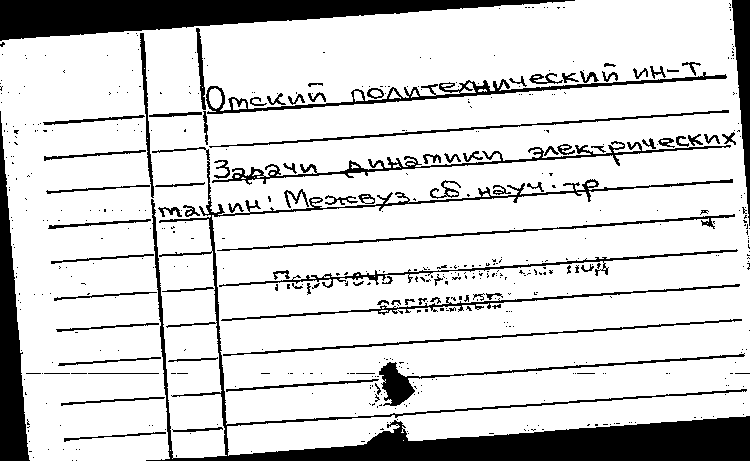 Омский политехнический ин-т.
Задачи динамики электрических
машин: Межвуз. сб. науч. тр.
Перечень изданий см. под
заглавием